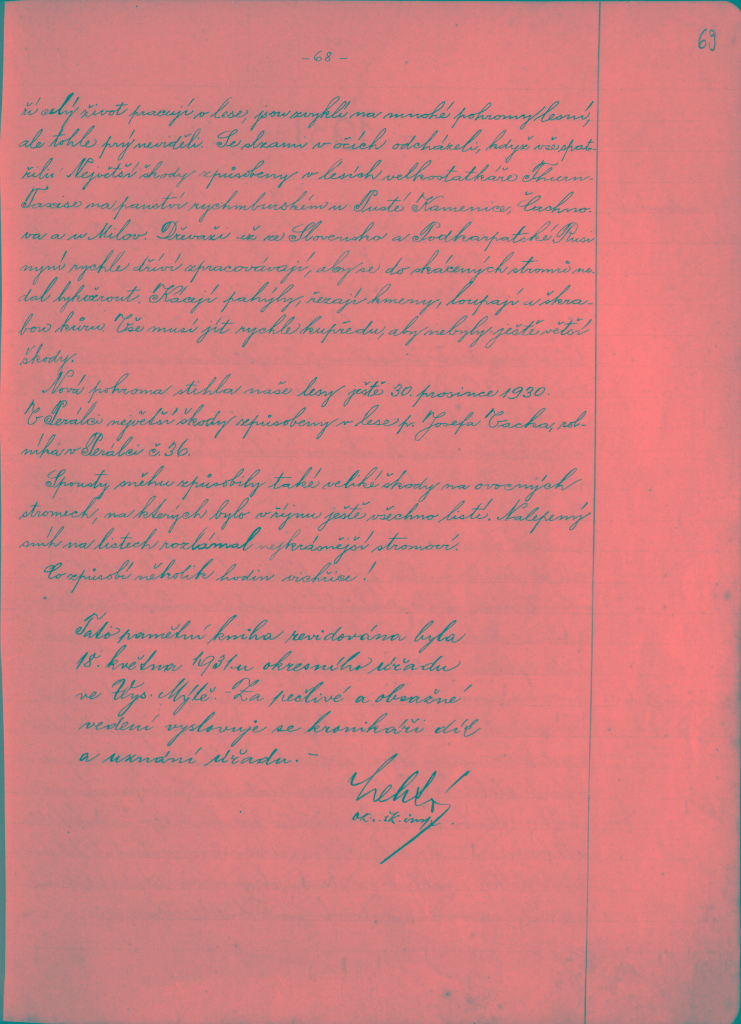 69
- 68 -
ří celý život pracují v lese, jsou zvyklí na mnohé pohromy lesní,
ale tohle prý neviděli. Se slzami v očích odcházeli, když vše spat-
řili. Největší škody způsobeny v lesích velkostatkáře Thurn-
Taxise na panství rychmburském u Pusté Kamenice, Čachno-
va a u Milov. Dřevaři až ze Slovenska a Podkarpatské Rusi
nyní rychle dříví zpracovávají, aby se do skácených stromů ne-
dal lýkožrout. Kácejí pahýly, řezají kmeny, loupají a škra-
bou kůru. Vše musí jít rychle kupředu, aby nebyly ještě větší
škody.
Nová pohroma stihla naše lesy ještě 30. prosince 1930.
V Perálci největší škody způsobeny v lese p. Josefa Vacka, rol-
níka v Perálci č. 36.
Spousty sněhu způsobily také veliké škody na ovocných
stromech, na kterých bylo v říjnu ještě všechno listí. Nalepený
sníh na listech rozlámal nejkrásnější stromoví.
Co způsobí několik hodin vichřice!
Tato pamětní kniha revidována byla
18. května 1931 u okresního úřadu
ve Vys. Mýtě. - Za pečlivé a obsažné
vedení vyslovuje se kronikáři dík
a uznání úřadu. -
ok. šk. insp.